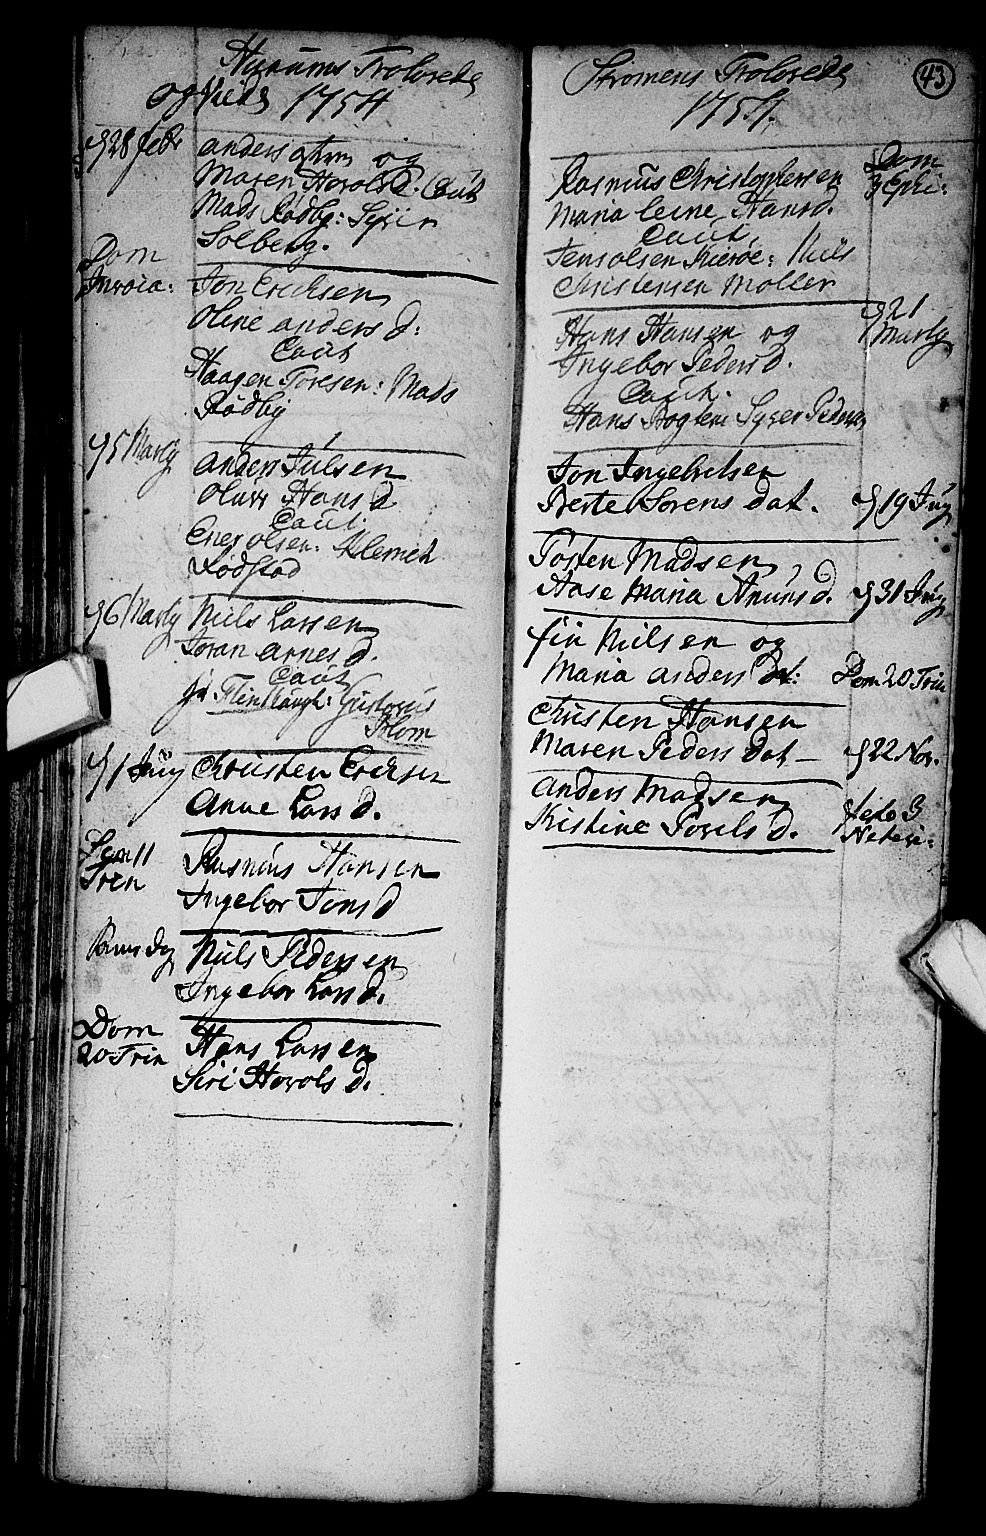 Hurums Trolovede
og Viede 1754
d 28 febr
anders og
Maren Havolsd. Caut
Mads Rødby: Syver
Solberg.
Dom
Invoca:
Jon Ericksen
Oline anders d:
Caut
Haagen Toresen: Mads
Rødby
d 5 Marty
anders Julsen
Oluvs Hans d
Caut.
Ener olsen: Klemet
Rødstad
d 6 Marty
Niels Larsen
Joran arnes d.
Caut
Flinthaugh: Gustavus
Blom
d 1 July
Christen Ericksen
Anne Lars d.
Dom 11
Tren
Rasmus Hansen
Ingebor Jons d
Niels Pedersen
Ingebor Lars d.
Dom
20 Trin
Hans Larsen
Siri Havols d.
43
Strømens Trolovede
1754.
Rasmus Christophersen
Dom
3 Ephi:
Maria Leine Hansd.
Caut.
Jens olsen Kierøe: Niils
Christensen Møller
Hans Hansen og
d 21
Marty
Ingebor Peders d.
Caut.
Hans Bogtene Syver Peders
Jon Ingebretsen
Berte Sørens dat.
d 19 July
Tosten Madsen
Aase Maria Amunsd.
d 31 July
fin Nielsen og
Maria anders dat:
Dom 20 Trin
Christen Hansen
Maren Peders dat
d 22 Nov.
Anders Madsen
Kistine Povels d.
festo 3
Nativi: